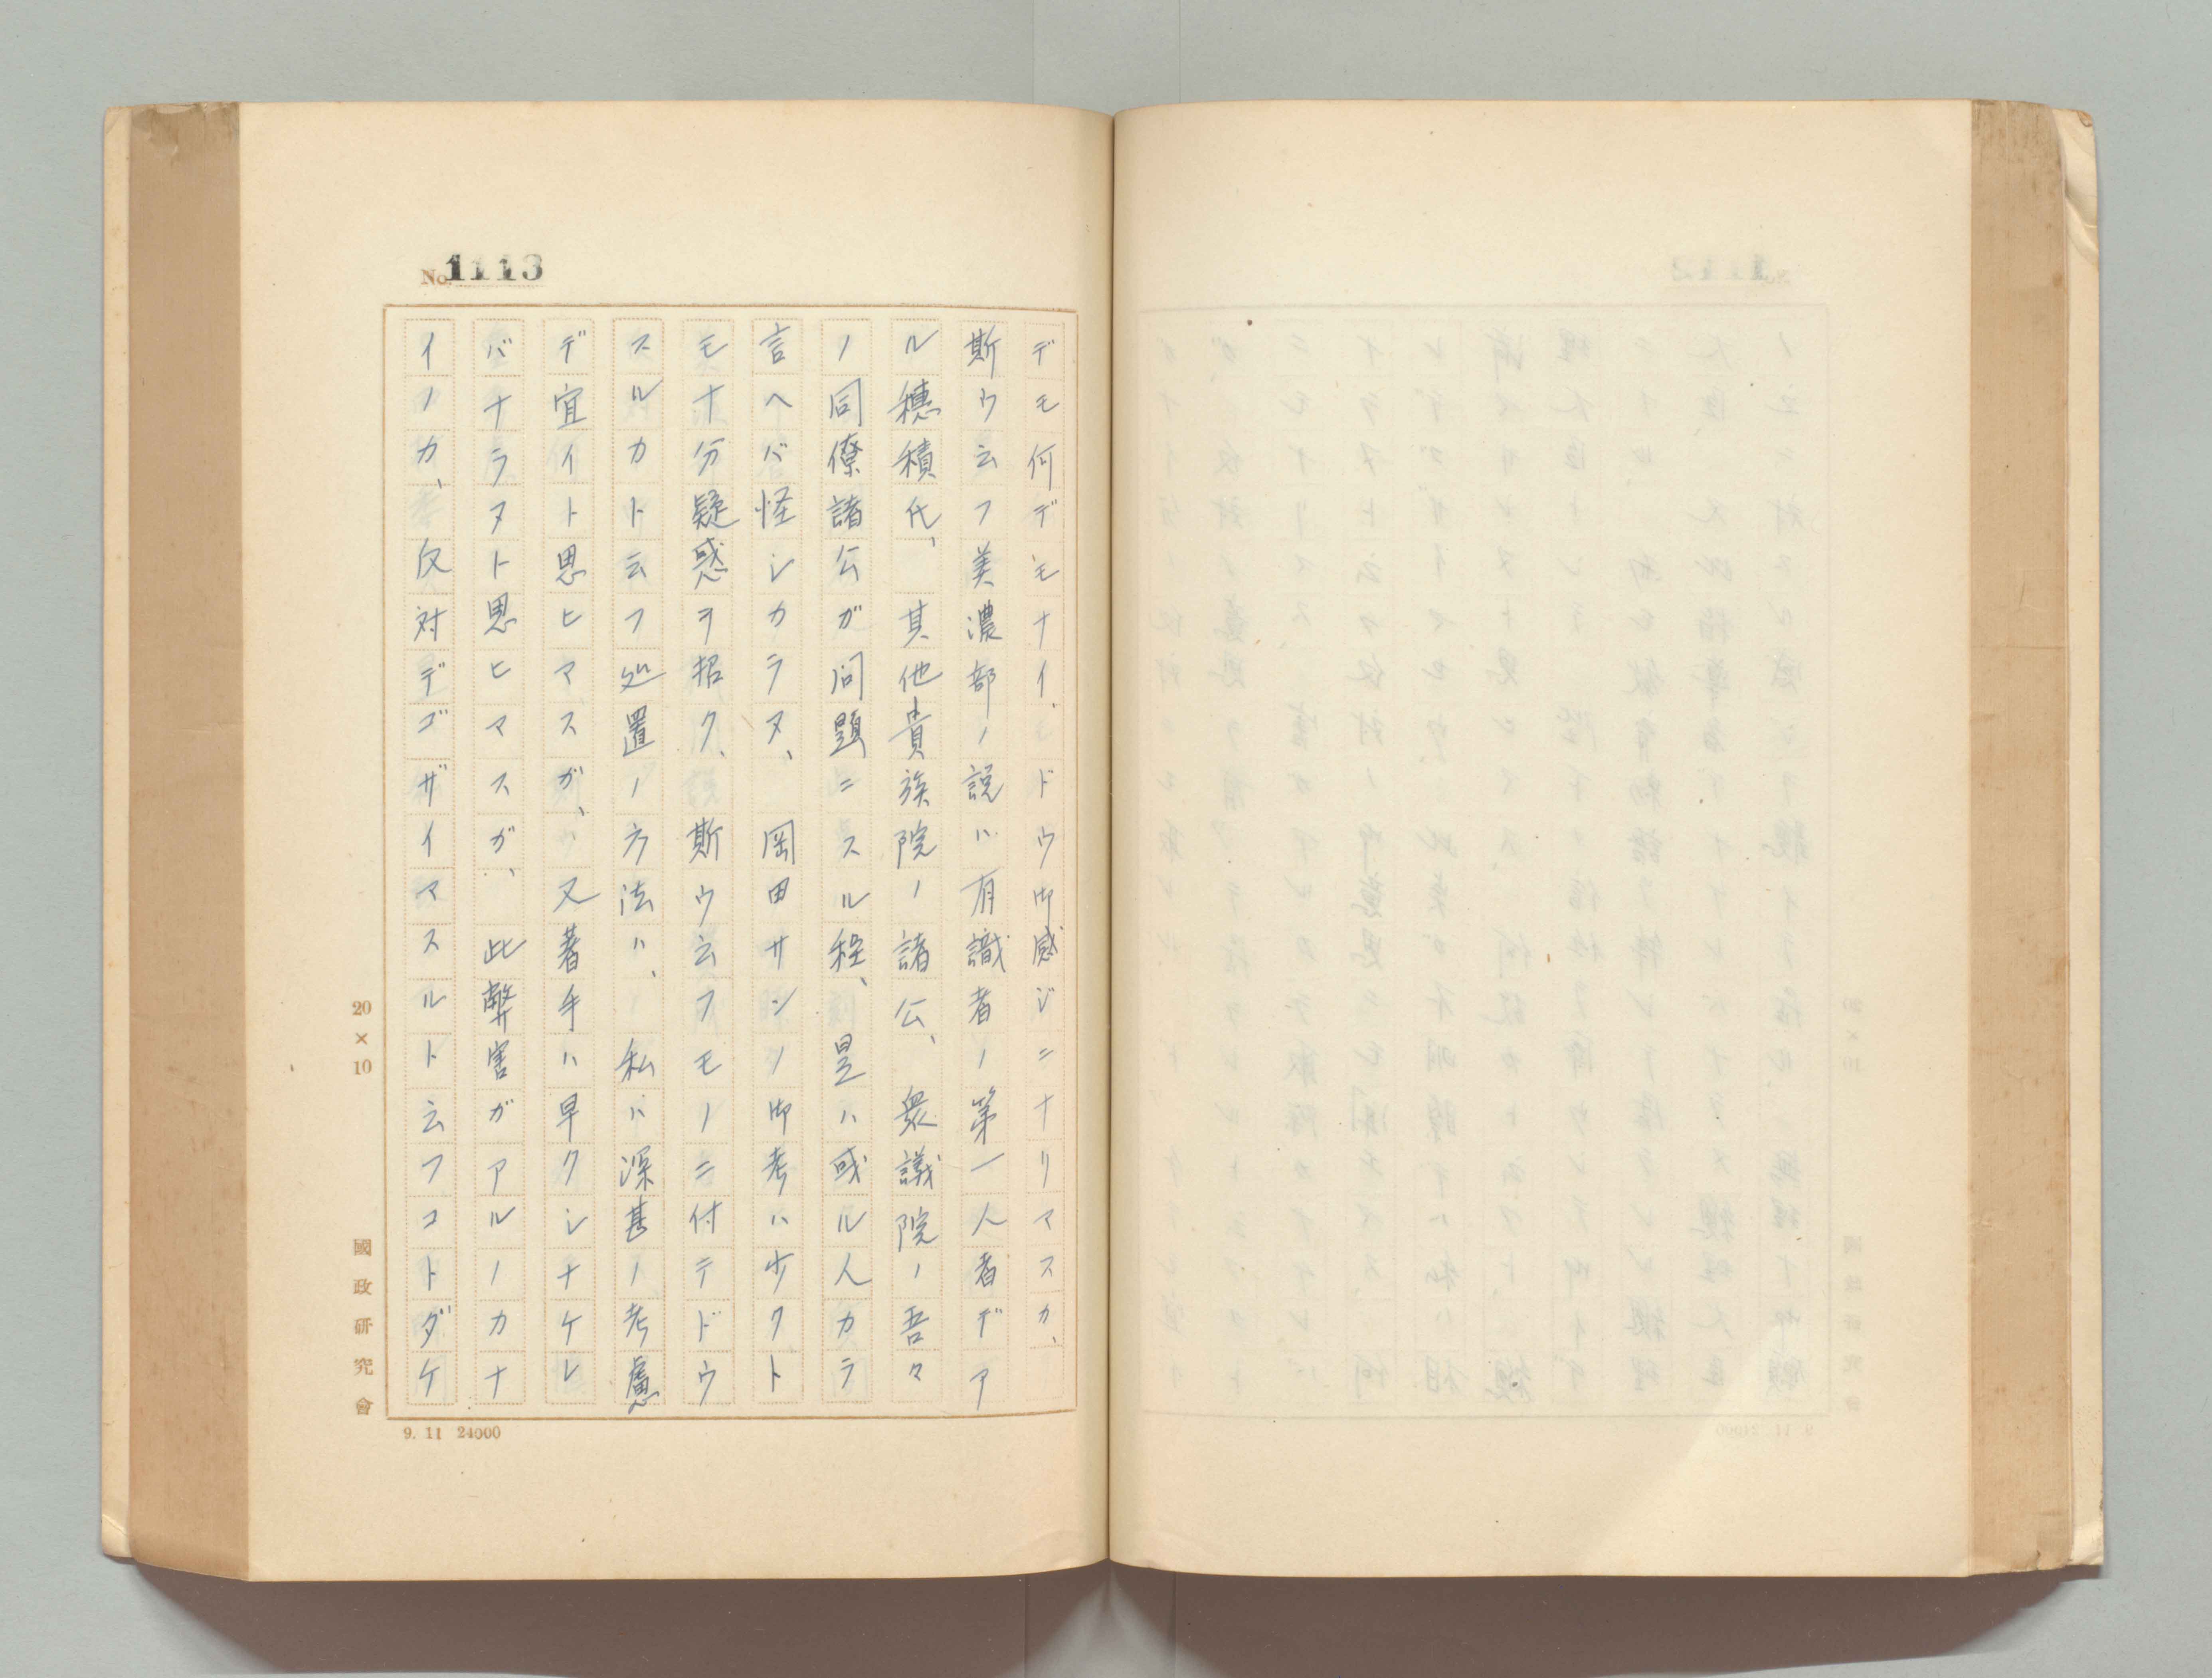 No. 1113
デモ何デモナイ、ドウ御感ジニナリマスカ、
斯ウ云フ美濃部ノ説ハ有識者ノ第一人者デア
ル穂積氏、其他貴族院ノ諸公、衆議院ノ吾々
ノ同僚諸公ガ問題ニスル程、是ハ或ル人カラ
言ヘバ怪シカラヌ、岡田サンノ御考ハ少クト
モ十分疑惑ヲ招ク、斯ウ云フモノニ付テドウ
スルカト云フ処置ノ方法ハ、私ハ深甚ノ考慮
デ宜イト思ヒマスガ、又著手ハ早クシナケレ
バナラヌト思ヒマスガ、此弊害ガアルノカナ
イノカ、反対デゴザイマスルト云フコトダケ
20×10
國政研究會
9. 11 24000